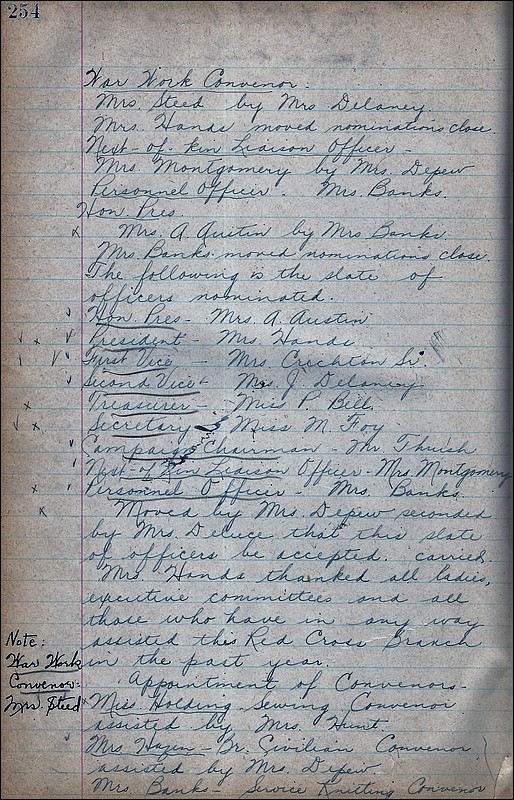 254
War Work Convenor:
Mrs. Steed by Mrs Delaney.
Mrs. Hands moved nominations close.
Next-of-Kin Liaison Officer -
Mrs. Montgomery by Mrs. Depew
Personnel Officer - Mrs. Banks.
Hon. Pres.
x Mrs. A. Austin by Mrs Banks.
Mrs. Banks moved nominations close.
The following is the slate of
officers nominated.
Hon Pres - Mrs. A. Austin
President - Mrs Hands
First Vice - Mrs. Creighton Sr.
Second Vice - Mrs. J. Delaney
Treasurer - Miss P. Bell
Secretary - Miss M. Foy
Campaign Chairman - Mr Thrush
Next-of-Kin Liaison Officer - Mrs. Montgomery
Personnel Officer - Mrs. Banks.
Moved by Mrs. Depew seconded
by Mrs. Deluce that this slate
of officers be accepted. carried.
Mrs. Hands thanked all ladies,
executive committees and all
those who have in any way
assisted this Red Cross Branch
in the past year.
Note:
War Work
Convenor:
Mrs. Steed
Appointment of Convenors -
Miss. Holding Sewing Convenor
assisted by Mrs. Hunt
Mrs Hazen - Br. Civilian Convenor
assisted by Mrs. Depew
Mrs. Banks - Service Knitting Convenor